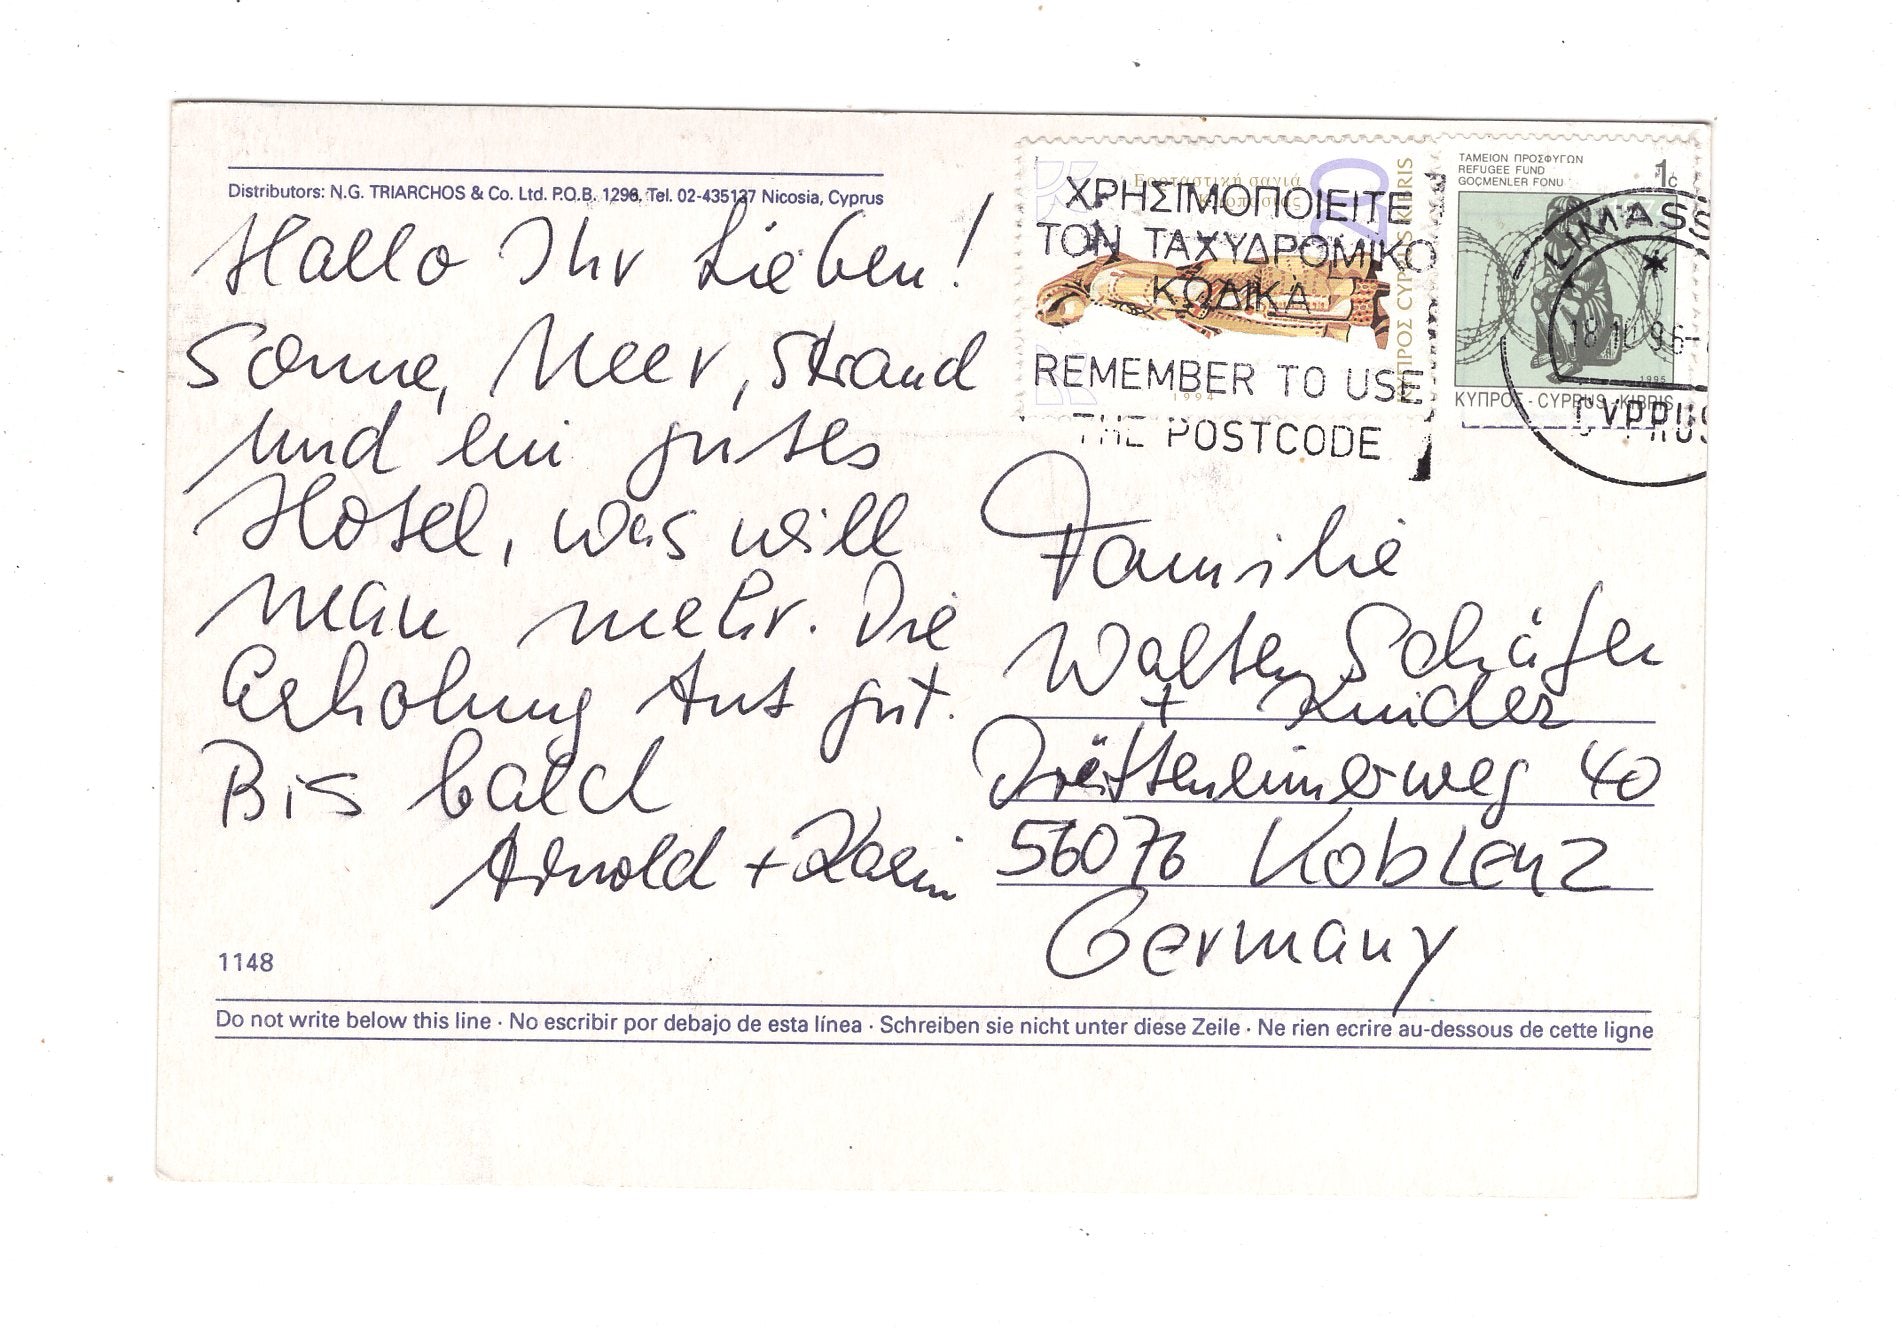 Distributors: N.G. TRIARCHOS & Co. Ltd. P.O.B. 1296, Tel. 02-435137 Nicosia, Cyprus
Hallo Ihr Lieben!
Sonne, Meer, Strand
und ein gutes
Hotel, was will
man mehr. Die
Erholung tut gut.
Bis bald
Arnold + Karin
1148
ΧΡΗΣΙΜΟΠΟΙΕΙΤΕ
ΤΟΝ ΤΑΧΥΔΡΟΜΙΚΟ
ΚΩΔΙΚΑ
REMEMBER TO USE
THE POSTCODE
Εορταστική σαγιά
20
ΚΥΠΡΟΣ CYPRUS KIBRIS
1994
ΤΑΜΕΙΟΝ ΠΡΟΣΦΥΓΩΝ
REFUGEE FUND
GÖÇMENLER FONU
1c
1995
ΚΥΠΡΟΣ - CYPRUS - KIBRIS
LIMASS
CYPRUS
Familie
Walter Schäfer
+ Kinder
40
56076 Koblenz
Germany
Do not write below this line · No escribir por debajo de esta línea · Schreiben sie nicht unter diese Zeile · Ne rien ecrire au-dessous de cette ligne